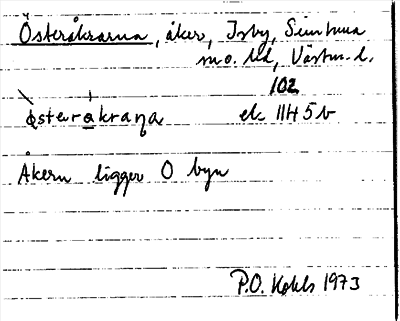 Österåkrarna, åker, Isby, Simtuna
sn o. hd, Västm. l.
102
østerakrana ek 1145b
Åkern ligger O byn
P.O. Kohls 1973